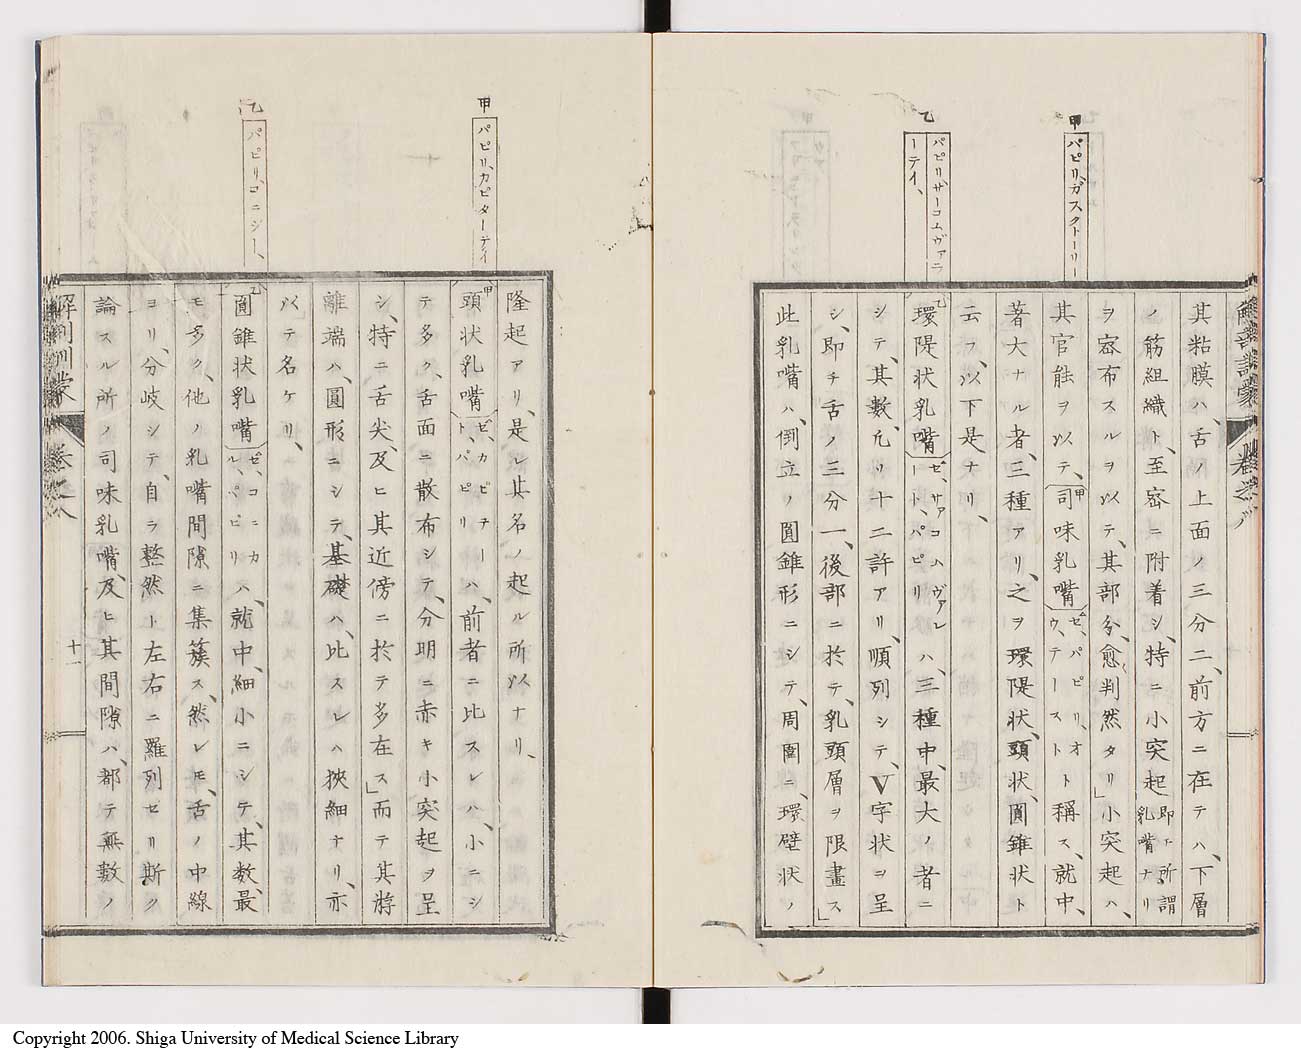 甲
パピリ、ガスクトーリー
乙
パピリサーコムヴァラ
ーテイ、
其粘膜ハ、舌ノ上面ノ三分二、前方ニ在テハ、下層
ノ筋組織ト、至密ニ附着シ、特ニ小突起即エ所謂乳嘴ナリ
ヲ密布スルヲ以テ、其部分、愈〻判然タリ」小突起ハ、
其官能ヲ以テ、甲司味乳嘴ゼ、パピリ、オウ、テースト、ト稱ス、就中、
著大ナル者、三種アリ、之ヲ環隄状、頭状、圓錐状ト
云フ、以下是ナリ、
乙環隄状乳嘴ゼ、サァコムヴァレート、パピリハ、三種中、最大ノ者ニ
シテ、其數凢リ十二許アリ、順列シテ、V字状ヲ呈
シ、即チ舌ノ三分一、後部ニ於テ、乳頭層ヲ限畫ス」
此乳嘴ハ、倒立ノ圓錐形ニシテ、周圍ニ、環壁状ノ
甲
パピリ、カピターテイ
乙
パピリ、コニシー、
隆起アリ、是レ其名ノ起ル所以ナリ、
甲頭状乳嘴ゼ、カピテート、パピリハ、前者ニ比スレハ、小ニシ
テ多ク、舌面ニ散布シテ、分明ニ赤キ小突起ヲ呈
シ、特ニ舌尖、及ヒ其近傍ニ於テ多在ス」而テ其游
離端ハ、圓形ニシテ、基礎ハ、比スレハ狹細ナリ、亦
以テ名ケリ、
乙圓錐状乳嘴ゼ、コニカル、パピリハ、就中、細小ニシテ、其數、最
モ多ク、他ノ乳嘴間隙ニ集簇ス、然レモ、舌ノ中線
ヨリ、分岐シテ、自ラ整然ト左右ニ羅列セリ斯ク
論スル所ノ司味乳嘴、及ヒ其間隙ハ、都テ無數ノ
十一
Copyright 2006. Shiga University of Medical Science Library